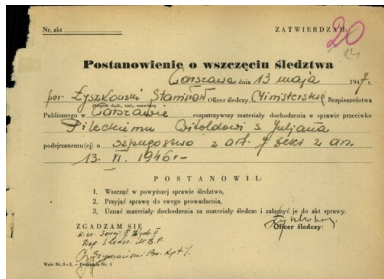 Nr. akt
ZATWIERDZAM:
20
Postanowienie o wszczęciu śledztwa
Warszawa dnia 13 maja 1947 r.
por. Łyszkowski Stanisław Oficer śledczy Ministerstwa Bezpieczeństwa
Publicznego w Warszawie rozpatrzywszy materiały dochodzenia w sprawie przeciwko
Pileckiemu Witoldowi s. Juljana
podejrzanemu (ej) o szpiegostwo z art. 7 dekr. z dn.
13. VI. 1946 r.
POSTANOWIŁ:
1. Wszcząć w powyższej sprawie śledztwo,
2. Przyjąć sprawę do swego prowadzenia,
3. Uznać materiały dochodzenia za materiały śledcze i załączyć je do akt sprawy.
ZGADZAM SIĘ
Oficer śledczy: